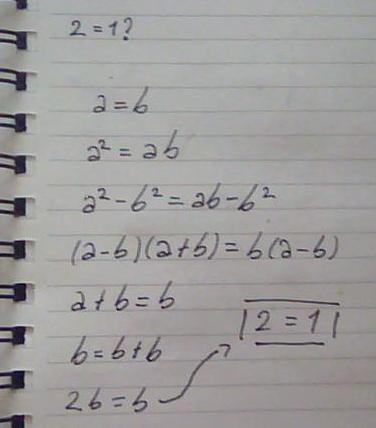 2 = 1?
a = b
a² = ab
a² - b² = ab - b²
(a-b)(a+b) = b(a-b)
a + b = b
b = b + b
2b = b
2 = 1